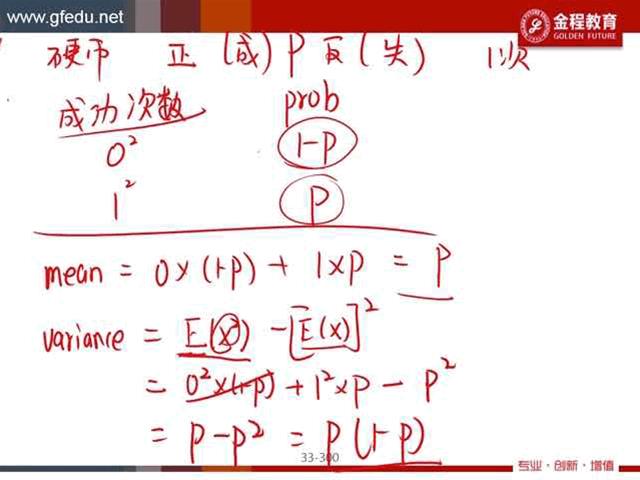 www.gfedu.net
金程教育
GOLDEN FUTURE
硬币 正(成) P 反(失) 1次
成功次数 prob
0² 1-P
1² P
mean = 0×(1-p) + 1×p = P
variance = E(x²) - [E(x)]²
= 0²×(1-p) + 1²×p - p²
= p-p² = p(1-p)
33-300
专业·创新·增值